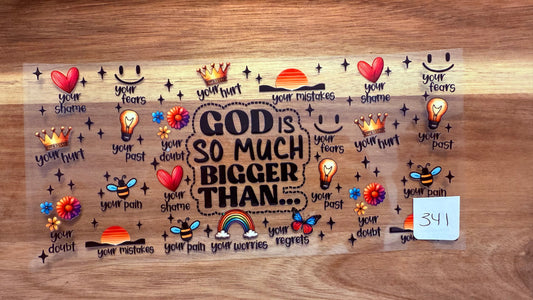 your shame
your fears
your hurt
your mistakes
your shame
your fears
your hurt
your past
your doubt
GOD IS
SO MUCH
BIGGER
THAN...
your fears
your hurt
your past
your pain
your shame
your past
your doubt
your pain
your doubt
your mistakes
your pain
your worries
your regrets
341